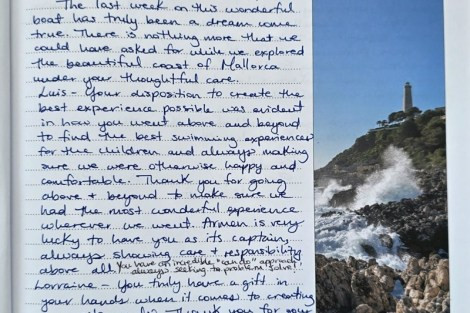 The last week on this wonderful
boat has truly been a dream come
true. There is nothing more that we
could have asked for while we explored
the beautiful coast of Mallorca
under your thoughtful care.
Luis - Your disposition to create the
best experience possible was evident
in how you went above and beyond
to find the best swimming experiences
for the children and always making
sure we were otherwise happy and
comfortable. Thank you for going
above + beyond to make sure we
had the most wonderful experience
wherever we went. Armen is very
lucky to have you as its captain,
always showing care + responsibility
above all. You have an incredible "can do" approach
always seeking to problem solve!
Lorraine - You truly have a gift in
your hands when it comes to creating
Thank you for your